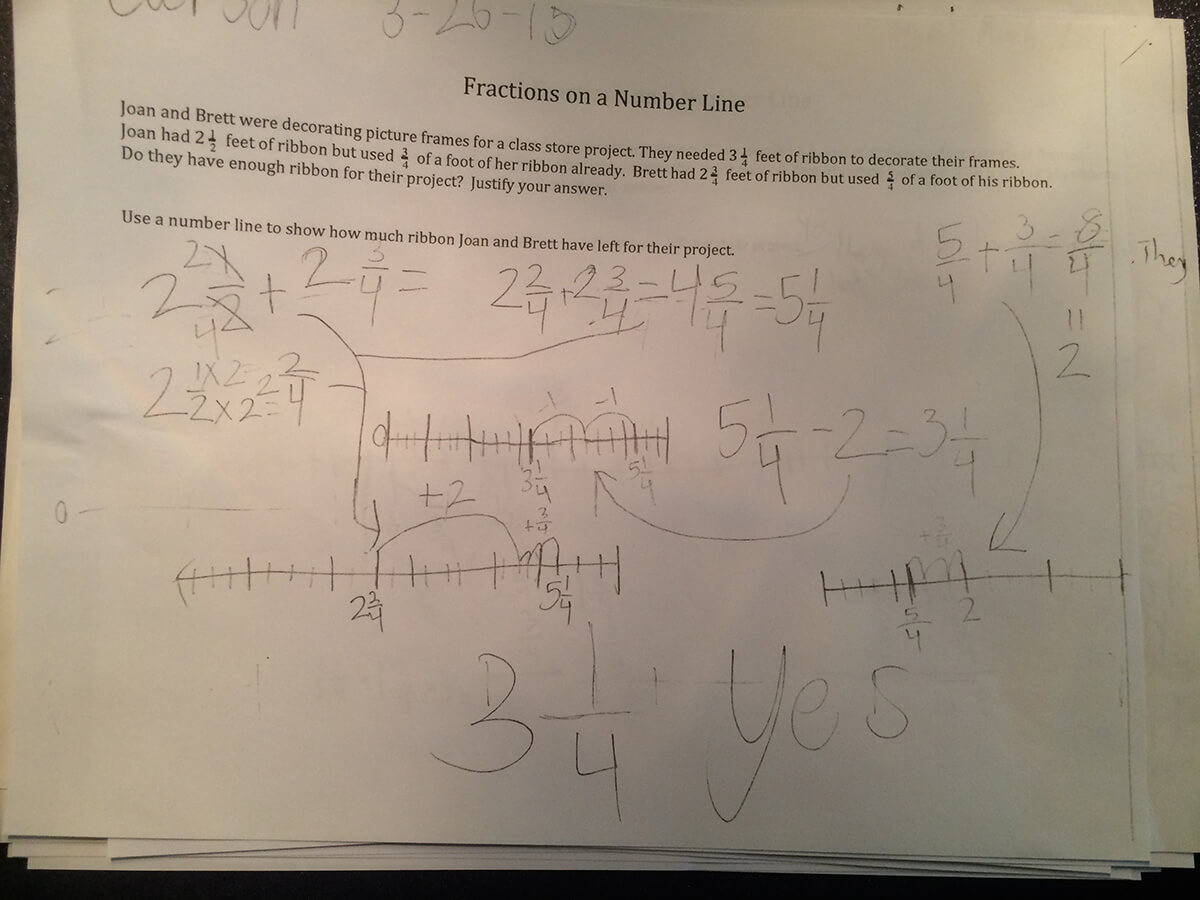 3-26-15
Fractions on a Number Line
Joan and Brett were decorating picture frames for a class store project. They needed 3 1/4 feet of ribbon to decorate their frames.
Joan had 2 1/2 feet of ribbon but used 3/4 of a foot of her ribbon already. Brett had 2 3/4 feet of ribbon but used 5/4 of a foot of his ribbon.
Do they have enough ribbon for their project? Justify your answer.
Use a number line to show how much ribbon Joan and Brett have left for their project.
5/4 + 3/4 = 8/4
They
2 2/4 + 2 3/4 = 4 5/4 = 5 1/4
+ 2 3/4 =
"
2
2 1x2/2x2 = 2 2/4
-1 -1
0
5 1/4 - 2 = 3 1/4
3 1/4 5 1/4
+2
0
+3/4
+3/4
5 1/4
5/4 2
3 1/4 Yes